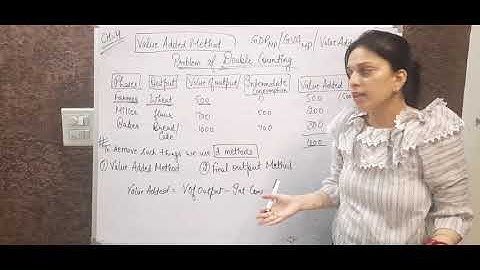 CH-4
Value Added Method GDPMP/GVAMP/Value Added
Problem of Double Counting
Phases Output Value of output Intermediate Consumption Value Added
Farmer Wheat 500 500
Miller flour 700 500 200
Baker Bread/ 1000 700 300
Cake 1000
To remove such things we use 2 methods
① Value Added Method ② Final output Method
Value Added = V of Output - Int Cons